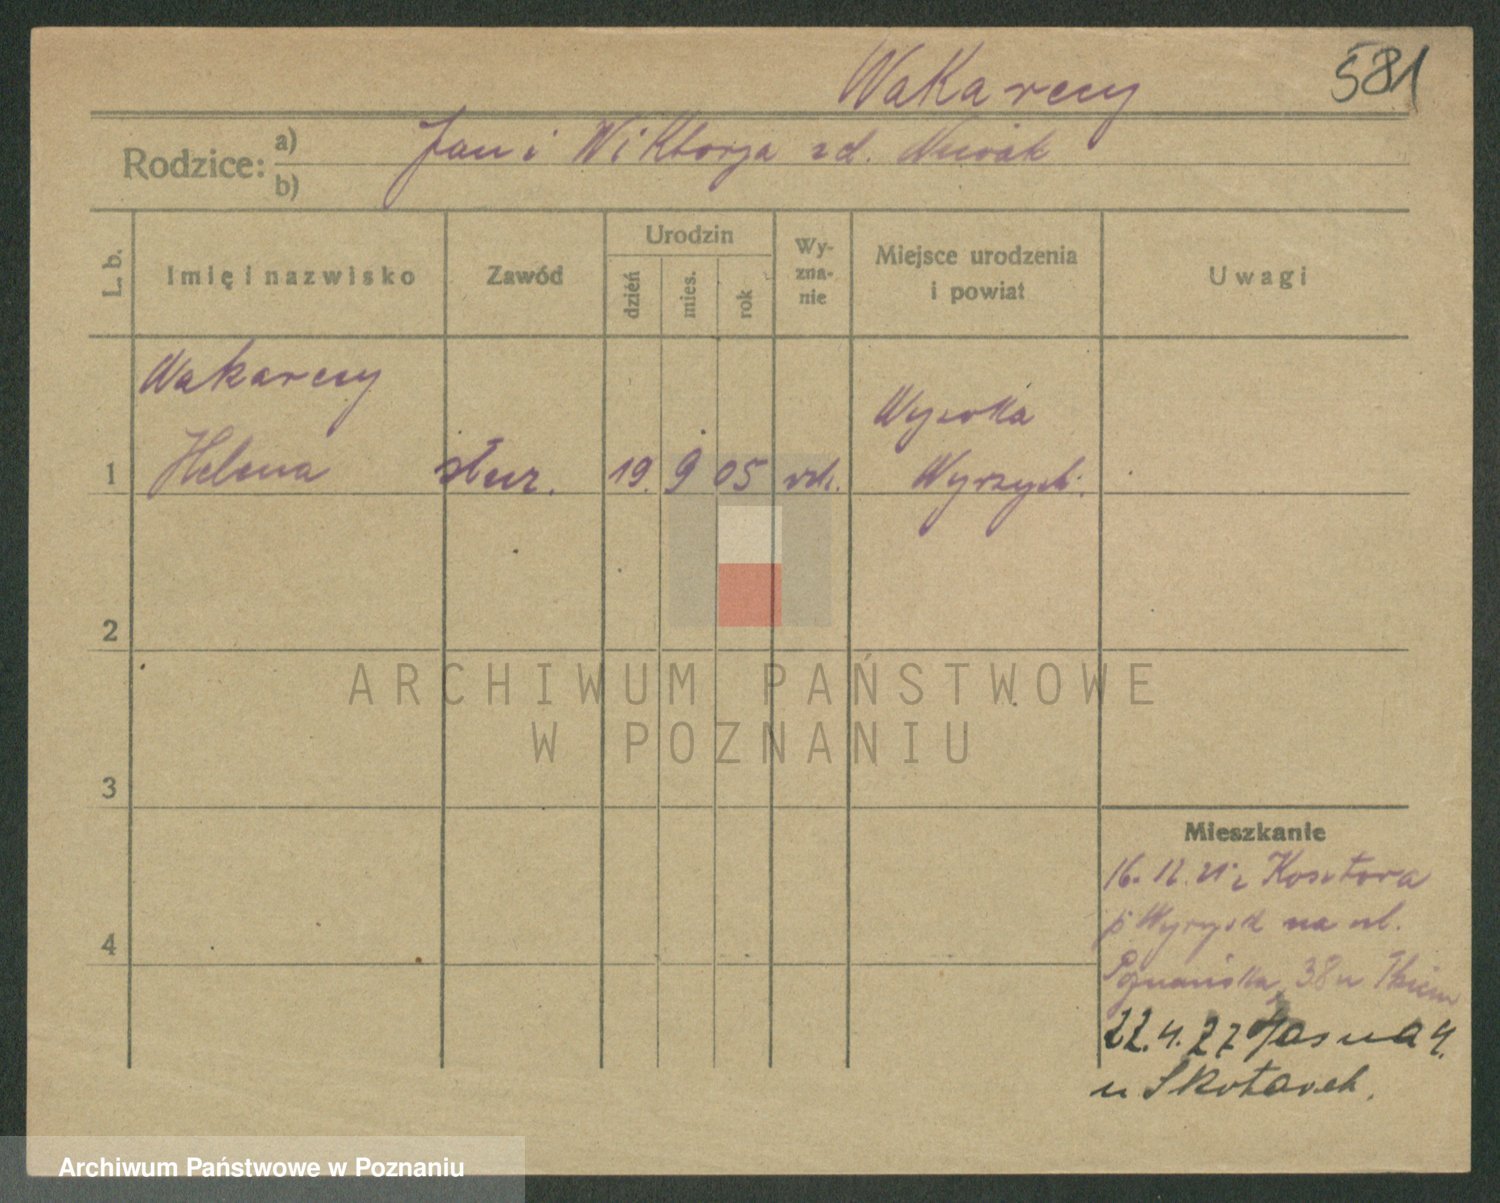 Wakarecy 581
Rodzice: a) Jan i Wiktorja zd. Nowak
b)
L. b. Imię i nazwisko Zawód Urodzin dzień mies. rok Wy-zna-nie Miejsce urodzenia i powiat Uwagi
Wakarecy
Wysoka
1 Helena służ. 19. 9 05 rzk. Wyrzysk.
2
ARCHIWUM PAŃSTWOWE
W POZNANIU
3
Mieszkanie
16. 12. z Kosztowa
p Wyrzysk na ul.
4
Poznańska 38 u
22. 4. 27 Jasna 4.
u
Archiwum Państwowe w Poznaniu